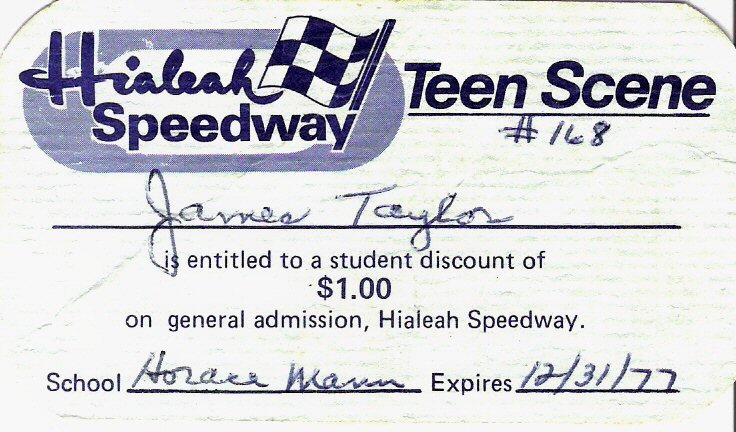 Hialeah
Speedway
Teen Scene
#168
James Taylor
is entitled to a student discount of
$1.00
on general admission, Hialeah Speedway.
School Horace Mann Expires 12/31/77